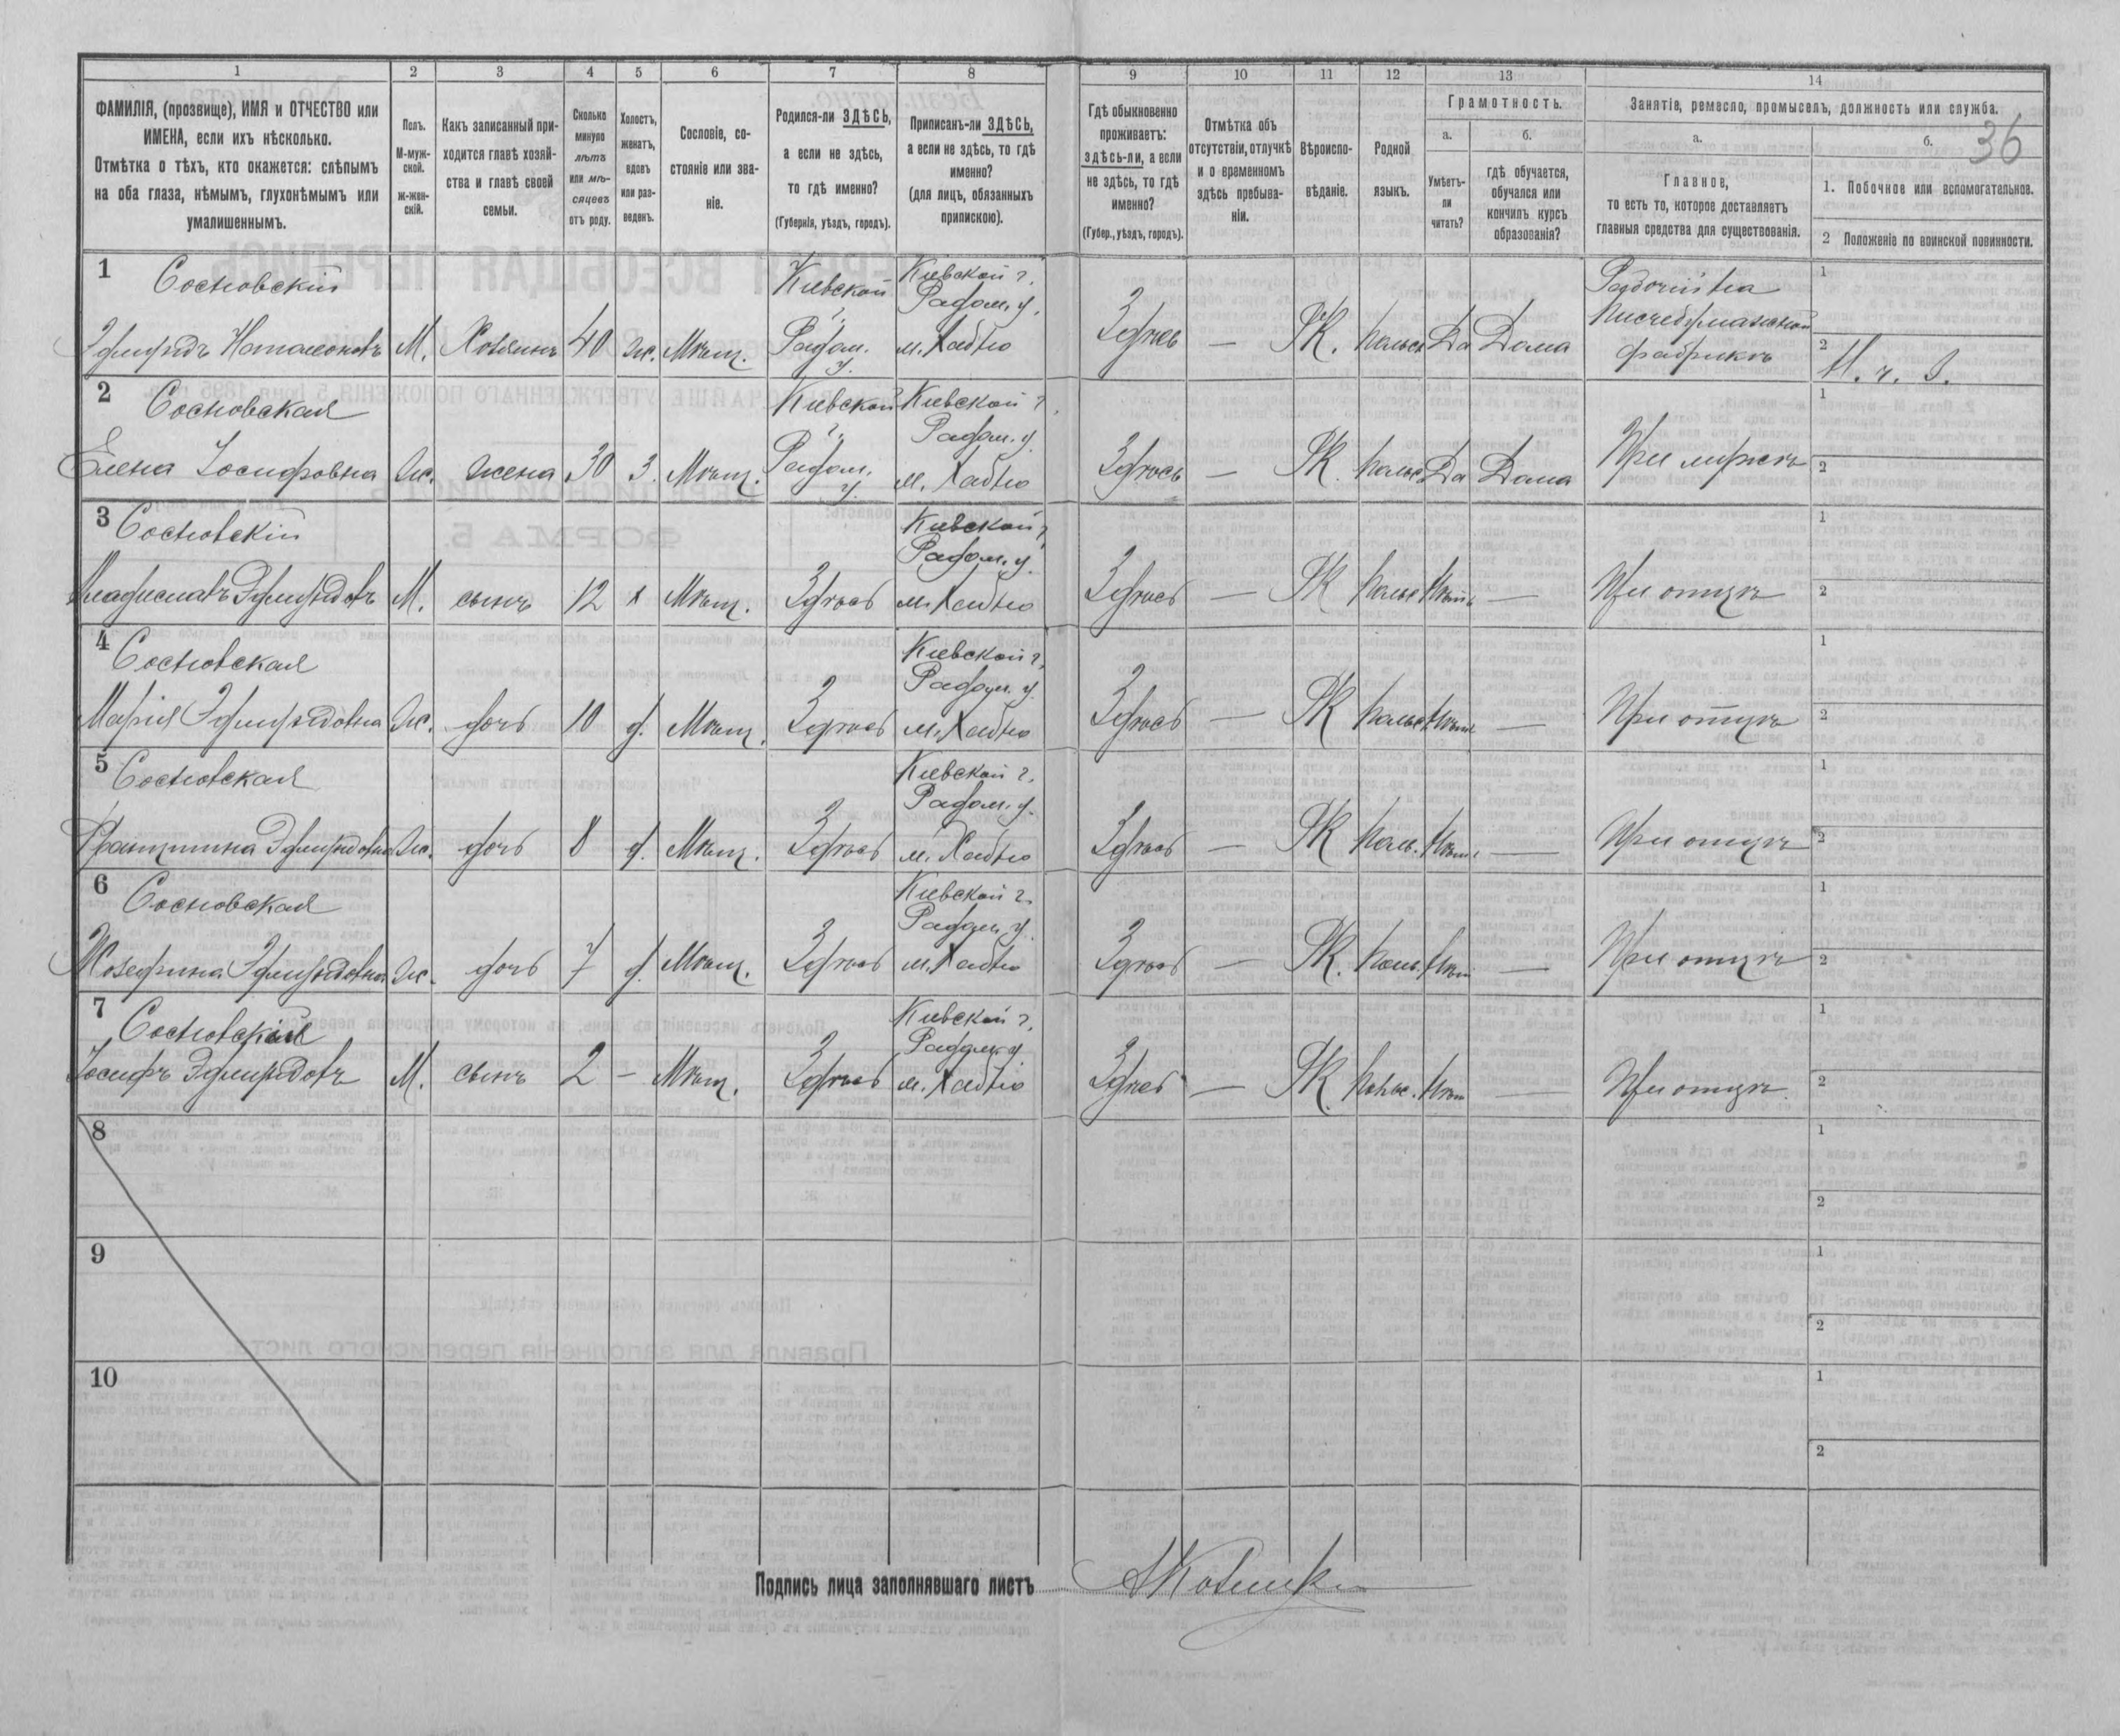 1 2 3 4 5 6 7 8 9 10 11 12 13 14
ФАМИЛІЯ, (прозвище), ИМЯ и ОТЧЕСТВО или
ИМЕНА, если ихъ нѣсколько.
Отмѣтка о тѣхъ, кто окажется: слѣпымъ
на оба глаза, нѣмымъ, глухонѣмымъ или
умалишеннымъ.
Полъ.
М-муж-
ской.
ж-жен-
скій.
Какъ записанный при-
ходится главѣ хозяй-
ства и главѣ своей
семьи.
Сколько
минуло
лѣтъ
или мѣ-
сяцевъ
отъ роду.
Холостъ,
женатъ,
вдовъ
или раз-
веденъ.
Сословіе, со-
стояніе или зва-
ніе.
Родился-ли ЗДѢСЬ,
а если не здѣсь,
то гдѣ именно?
(Губернія, уѣздъ, городъ).
Приписанъ-ли ЗДѢСЬ,
а если не здѣсь, то гдѣ
именно?
(для лицъ, обязанныхъ
припискою).
Гдѣ обыкновенно
проживаетъ:
здѣсь-ли, а если
не здѣсь, то гдѣ
именно?
(Губер., уѣздъ, городъ).
Отмѣтка объ
отсутствіи, отлучкѣ
и о временномъ
здѣсь пребыва-
ніи.
Вѣроиспо-
вѣданіе.
Родной
языкъ.
Грамотность.
а.
Умѣетъ-
ли
читать?
б.
гдѣ обучается,
обучался или
кончилъ курсъ
образованія?
Занятіе, ремесло, промыселъ, должность или служба.
а.
Главное,
то есть то, которое доставляетъ
главныя средства для существованія.
б.
36
1. Побочное или вспомогательное.
2 Положеніе по воинской повинности.
1 Сосновскій Кіевской Кіевской г. Работій на 1
г. Радом. у. Писчебумажной
М. Хозяинъ 40 Ж. Мѣщ. Радом. у. м. Хабно Здѣсь — РК. польск Да Дома фабрикѣ 2
2 Сосновская Кіевской г. Кіевской г. 1
Радом. у.
Елена Іосифовна Ж. жена 30 З. Мѣщ. Радом. у. м. Хабно Здѣсь — РК. польс Да Дома При мужѣ 2
3 Сосновскій Кіевской г. 1
Радом. у.
М. сынъ 12 х Мѣщ. Здѣсь м. Хабно Здѣсь — РК польс Нѣтъ — При отцѣ 2
4 Сосновская Кіевской г. 1
Радом. у.
Марія Ж. дочь 10 д. Мѣщ. Здѣсь м. Хабно Здѣсь — РК польс Нѣтъ — При отцѣ 2
5 Сосновская Кіевской г. 1
Радом. у.
Ж. дочь 8 д. Мѣщ. Здѣсь м. Хабно Здѣсь — РК поль. Нѣтъ — При отцѣ 2
6 Сосновская Кіевской г. 1
Радом. у.
Жозефина Ж. дочь 7 д. Мѣщ. Здѣсь м. Хабно Здѣсь — РК. поль. Нѣтъ — При отцѣ 2
7 Сосновскій Кіевской г. 1
Радом. у.
Іосифъ М. сынъ 2 – Мѣщ. Здѣсь м. Хабно Здѣсь — РК польс. Нѣтъ — При отцѣ 2
8 1
2
9 1
2
10 1
2
Подпись лица заполнявшаго листъ